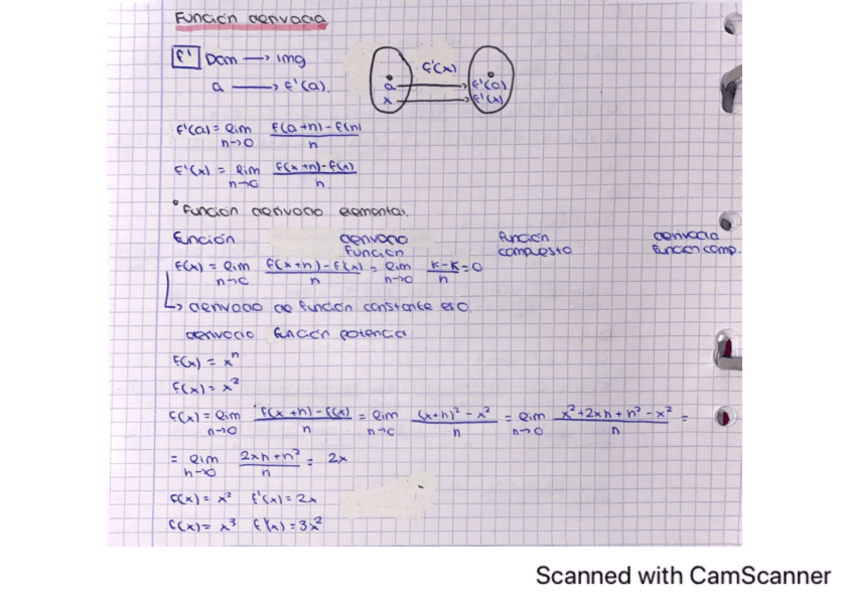 Función derivada
f' Dom → img
a → f'(a).
f'(x)
a f'(a)
x f'(x)
f'(a) = lim h→0 f(a+h) - f(h) / h
f'(x) = lim h→0 f(x+h) - f(x) / h
• Función derivada elemental.
función derivada función función compuesta derivada función comp.
f(x) = lim h→0 f(x+h) - f(x) / h = lim h→0 k-k / h = 0
↳ derivada de función constante es 0.
derivada función potencia
f(x) = xⁿ
f(x) = x²
f(x) = lim h→0 f(x+h) - f(x) / h = lim h→0 (x+h)² - x² / h = lim h→0 x² + 2xh + h² - x² / h =
= lim h→0 2xh + h² / h = 2x
f(x) = x² f'(x) = 2x
f(x) = x³ f'(x) = 3x²
Scanned with CamScanner